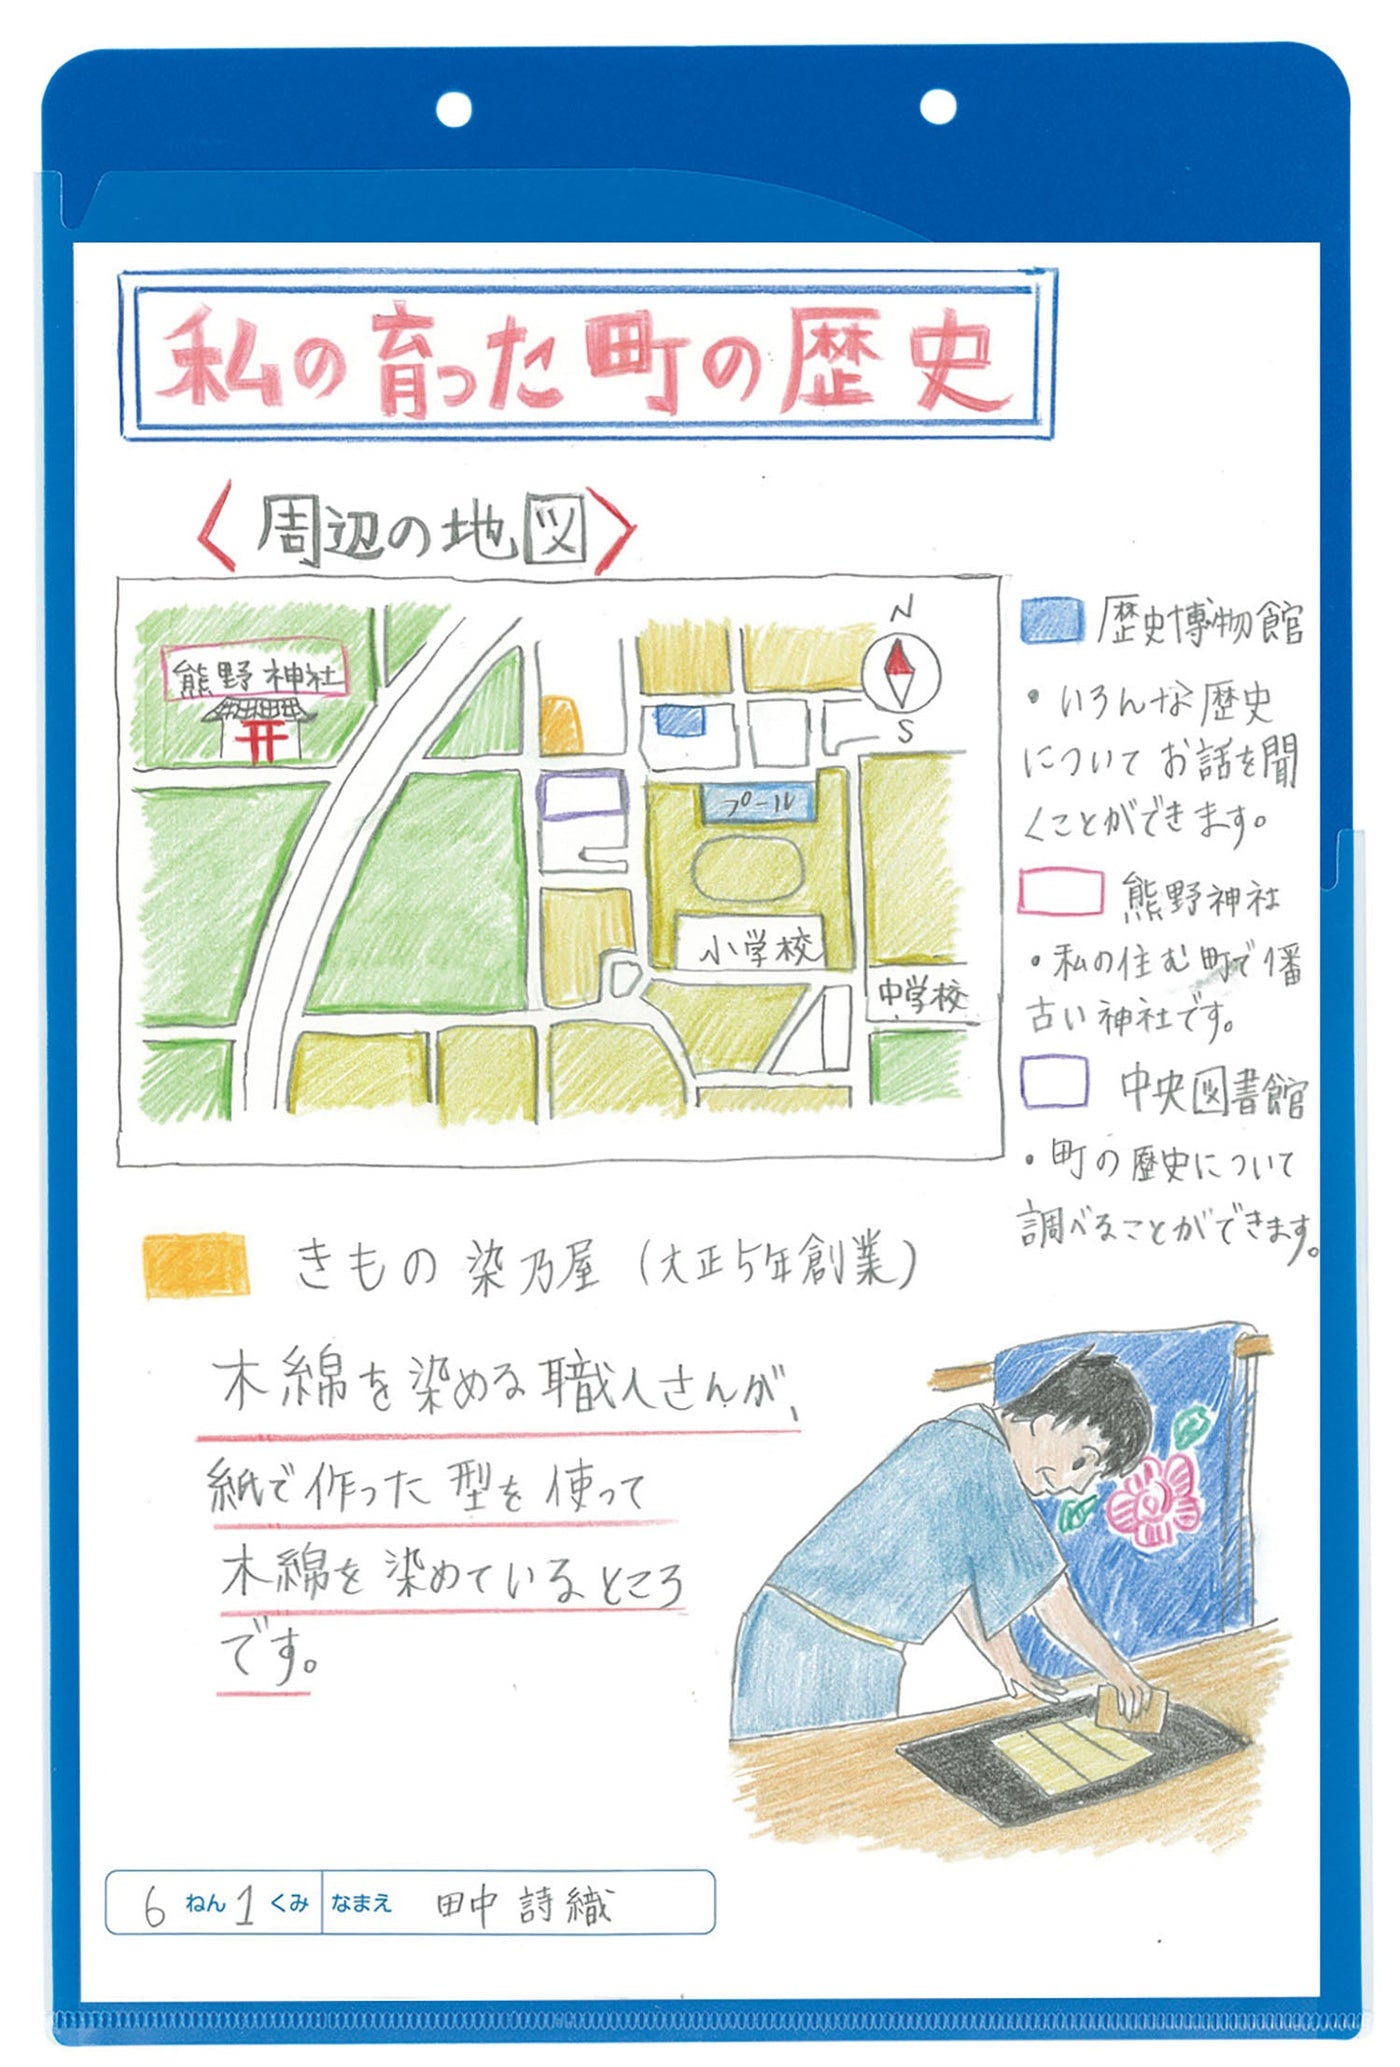 私の育った町の歴史
〈周辺の地図〉
熊野神社
N
S
プール
小学校
中学校
歴史博物館
・いろんな歴史
についてお話を聞
くことができます。
熊野神社
・私の住む町で1番
古い神社です。
中央図書館
・町の歴史について
調べることができます。
きもの 染乃屋（大正5年創業）
木綿を染める職人さんが、
紙で作った型を使って
木綿を染めているところ
です。
6 ねん 1 くみ なまえ 田中 詩織